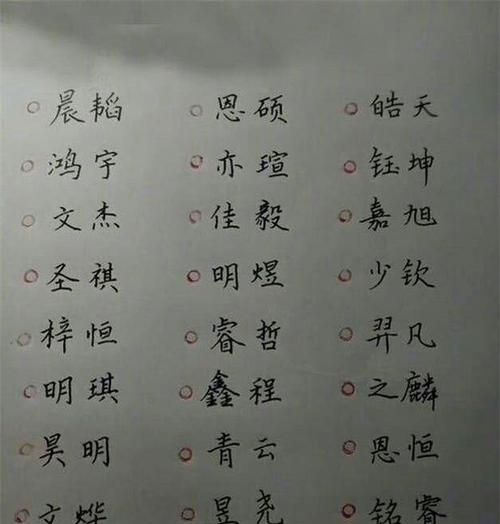 晨韬 恩硕 皓天
鸿宇 亦瑄 钰坤
文杰 佳毅 嘉旭
圣祺 明煜 少钦
梓恒 睿哲 羿凡
明琪 鑫程 之麟
昊明 青云 恩恒
文烨 昱尧 铭睿